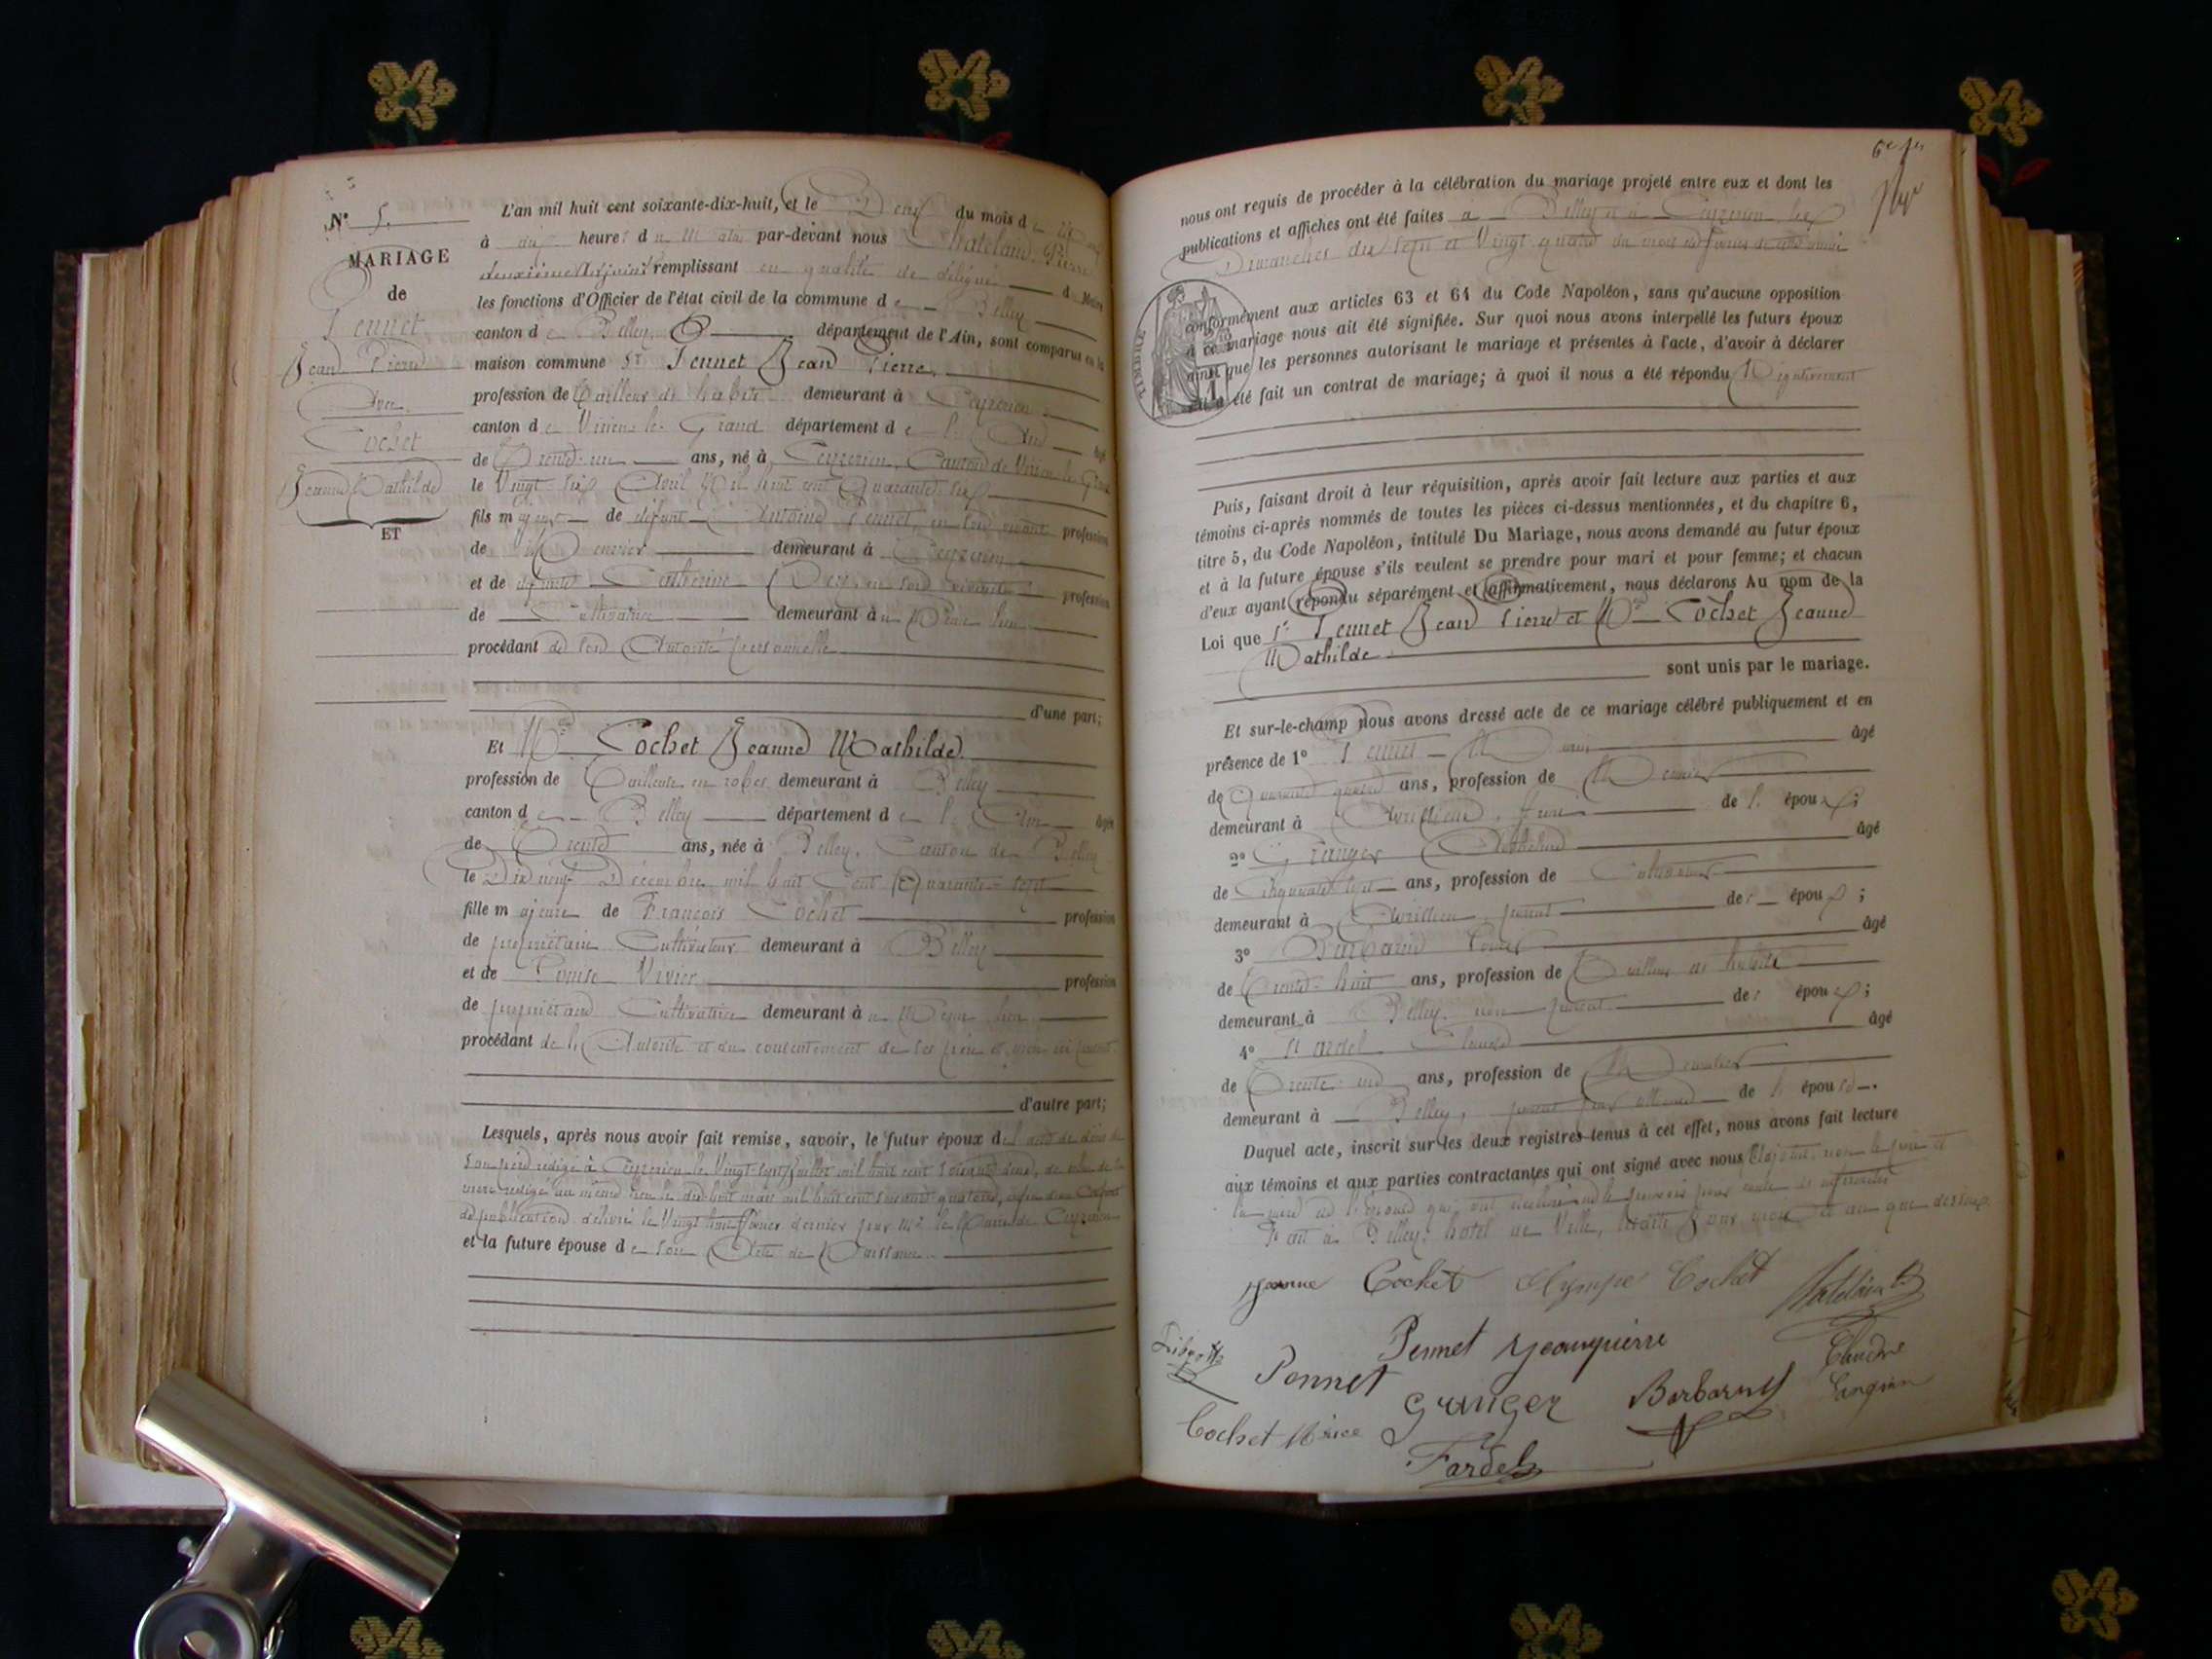 N° 5.
MARIAGE
de
Pennet
Jean Pierre
Avec
Cochet
Jeanne Mathilde
ET
L'an mil huit cent soixante-dix-huit, et le du mois d
à heure d par-devant nous Chateland Pierre
deuxième Adjoint remplissant en qualité de délégué d Maire
les fonctions d'Officier de l'état civil de la commune de Belley
canton de Belley département de l'Ain, sont comparus en la
maison commune Sr Pennet Jean Pierre
profession de Tailleur de habits demeurant à Ceyzerieu
canton de Virieu le Grand département de l'Ain âgé
de Trente un ans, né à Ceyzerieu, Canton de Virieu le Grand
le Vingt six Avril Mil huit cent Quarante six
fils majeur de défunt Antoine Pennet, en son vivant profession
de demeurant à Ceyzerieu
et de défunte Catherine en son vivante profession
de Cultivatrice demeurant à Même lieu
procédant de son Autorité personnelle
d'une part;
Et Mlle Cochet Jeanne Mathilde
profession de Tailleuse en robes demeurant à Belley
canton de Belley département de l'Ain âgée
de Trente ans, née à Belley, Canton de Belley
le Dix neuf Décembre mil huit Cent Quarante-sept
fille majeure de François Cochet profession
de propriétaire Cultivateur demeurant à Belley
et de Louise Vivier profession
de propriétaire Cultivatrice demeurant à Même lieu
procédant de l'Autorité et du consentement de ses père et mère ici présents
d'autre part;
Lesquels, après nous avoir fait remise, savoir, le futur époux de
son père rédigé à Ceyzerieu le Vingt sept Juillet mil huit cent soixante deux, de celui de la
mère rédigé au même lieu le dix huit mai mil huit cent soixante quatorze,
de publications délivré le Vingt huit février dernier par Mr le Maire de Ceyzerieu
et la future épouse de son Acte de Naissance
nous ont requis de procéder à la célébration du mariage projeté entre eux et dont les
publications et affiches ont été faites à Belley et à Ceyzerieu les
Dimanches dix sept et Vingt quatre du mois de février
TIMBRE
conformément aux articles 63 et 64 du Code Napoléon, sans qu'aucune opposition
à ce mariage nous ait été signifiée. Sur quoi nous avons interpellé les futurs époux
ainsi que les personnes autorisant le mariage et présentes à l'acte, d'avoir à déclarer
s'il a été fait un contrat de mariage; à quoi il nous a été répondu Négativement
Puis, faisant droit à leur réquisition, après avoir fait lecture aux parties et aux
témoins ci-après nommés de toutes les pièces ci-dessus mentionnées, et du chapitre 6,
titre 5, du Code Napoléon, intitulé Du Mariage, nous avons demandé au futur époux
et à la future épouse s'ils veulent se prendre pour mari et pour femme; et chacun
d'eux ayant répondu séparément et affirmativement, nous déclarons Au nom de la
Loi que Sr Pennet Jean Pierre et Mlle Cochet Jeanne
Mathilde
sont unis par le mariage.
Et sur-le-champ nous avons dressé acte de ce mariage célébré publiquement et en
présence de 1° Pennet âgé
de Quarante quatre ans, profession de
demeurant à de l'époux;
2° Granger âgé
de Cinquante ans, profession de Cultivateur
demeurant à parent de l'époux;
3° Barbarin Louis âgé
de Trente-huit ans, profession de Tailleur de habits
demeurant à Belley, non parent de l'époux;
4° Fardel Claude âgé
de Trente ans, profession de Menuisier
demeurant à Belley, parent par alliance de l'épouse.
Duquel acte, inscrit sur les deux registres tenus à cet effet, nous avons fait lecture
aux témoins et aux parties contractantes qui ont signé avec nous Adjoint, non le père et
la mère de l'épouse qui ont déclaré ne le pouvoir pour cause de
Fait à Belley, hôtel de Ville, les dits Jour, mois et an que dessus
jeanne Cochet Olympe Cochet Chatelain
Pennet Jeanpierre
Claudine
Pennet Granger Barbarin
Cochet
Fardel